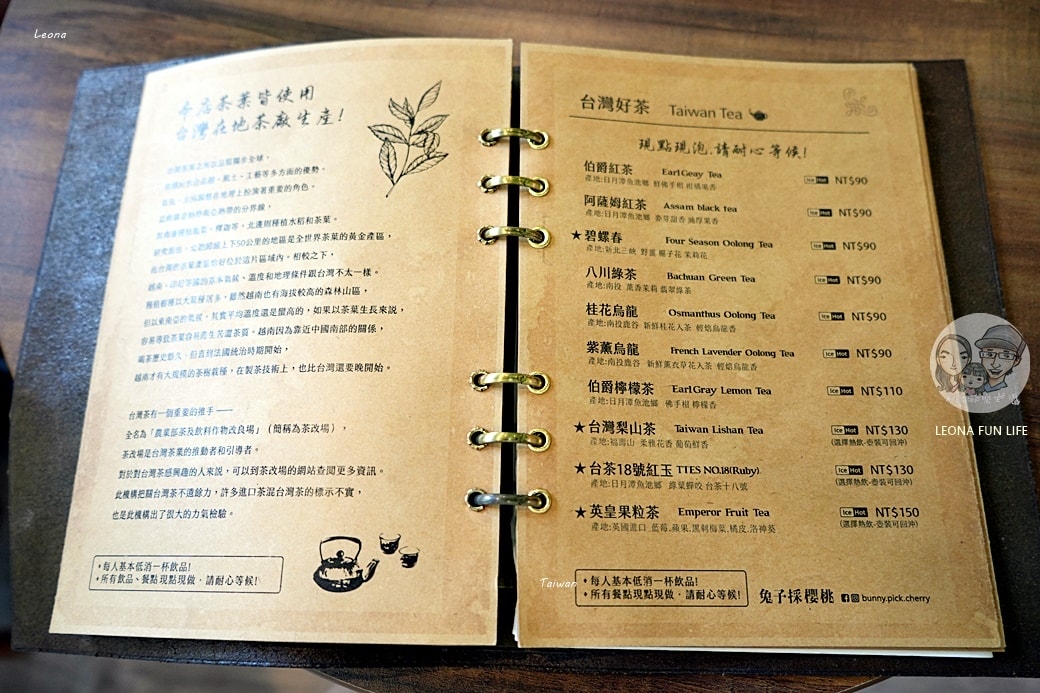 Leona
本店茶葉皆使用
台灣在地茶廠生產!
研究指出，
上下50公里的地區是全世界茶葉的黃金產區，
相較之下，
越南、印尼等國的基本氣候、溫度和地理條件跟台灣不太一樣。
雖然越南也有海拔較高的森林山區，
其實平均溫度還是蠻高的，如果以茶葉生長來說，
越南因為靠近中國南部的關係，
但直到法國統治時期開始，
越南才有大規模的茶樹栽種，在製茶技術上，也比台灣還要晚開始。
台灣茶有一個重要的推手 ——
全名為「農業部茶及飲料作物改良場」（簡稱為茶改場），
茶改場是台灣茶業的推動者和引導者。
對於對台灣茶感興趣的人來說，可以到茶改場的網站查閱更多資訊。
此機構把關台灣茶不遺餘力，許多進口茶混台灣茶的標示不實，
也是此機構出了很大的力氣檢驗。
•每人基本低消一杯飲品!
•所有飲品、餐點現點現做，請耐心等候!
台灣好茶 Taiwan Tea
現點現泡.請耐心等候!
伯爵紅茶 Earl Geay Tea Ice Hot NT$90
產地:日月潭魚池鄉 鮮佛手柑 柑橘果香
阿薩姆紅茶 Assam black tea Ice Hot NT$90
產地:日月潭魚池鄉 麥芽甜香 滷厚果香
★碧螺春 Four Season Oolong Tea Ice Hot NT$90
產地:新北三峽 野薑 梔子花 茉莉花
八川綠茶 Bachuan Green Tea Ice Hot NT$90
產地:南投 薰香茉莉 翡翠綠茶
桂花烏龍 Osmanthus Oolong Tea Ice Hot NT$90
產地:南投鹿谷 新鮮桂花入茶 輕焙烏龍香
紫薰烏龍 French Lavender Oolong Tea Ice Hot NT$90
產地:南投鹿谷 新鮮薰衣草花入茶 輕焙烏龍香
伯爵檸檬茶 Earl Gray Lemon Tea Ice Hot NT$110
產地:日月潭魚池鄉 佛手柑 檸檬香
★台灣梨山茶 Taiwan Lishan Tea Ice Hot NT$130
產地:福壽山 柔雅花香 葡萄鮮香 (選擇熱飲-壺裝可回沖)
★台茶18號紅玉 TTES NO.18(Ruby) Ice Hot NT$130
產地:日月潭魚池鄉 綠葉蟬咬 台茶十八號 (選擇熱飲-壺裝可回沖)
★英皇果粒茶 Emperor Fruit Tea Ice Hot NT$150
產地:英國進口 .藍莓.蘋果.黑刺梅葉.橘皮.洛神葵 (選擇熱飲-壺裝可回沖)
•每人基本低消一杯飲品!
•所有餐點現點現做，請耐心等候!
兔子採櫻桃 bunny.pick.cherry
Taiwan
LEONA FUN LIFE